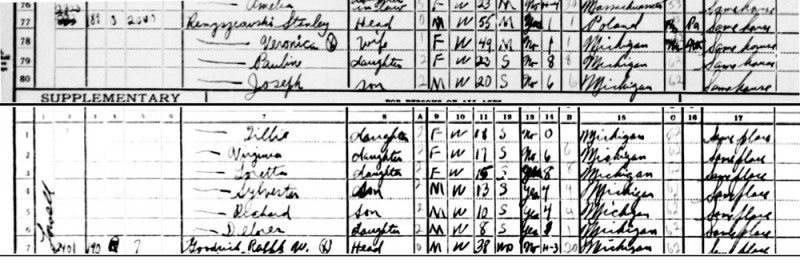 76 Amelia F W 23 M Massachusetts Same house
77 189 Stanley Head M W 55 M Yes 1 Poland Same house
78 — Veronica Wife F W 49 M No 1 1 Michigan Same house
79 — Pauline daughter 2 F W 23 S No 8 8 Michigan Same house
80 — Joseph Son 2 M W 20 S No 6 6 Michigan Same house
SUPPLEMENTARY FOR PERSONS OF ALL AGES
1 2 3 4 5 6 7 8 A 9 10 11 12 13 14 B 15 C 16 17
1 — Tillie daughter 2 F W 18 S No 0 Michigan Same place
2 — Virginia daughter 2 F W 17 S No 6 Michigan Same place
3 — Loretta daughter 2 F W 15 S 8 Michigan Same place
4 — Sylvester Son 2 M W 13 S Yes Michigan Same place
5 — Richard Son 2 M W 10 S Yes 4 Michigan Same place
6 — Delores daughter 2 M W 8 S Yes 1 Michigan Same place
7 2401 190 Goodrich, Ralph W. Head 0 M W 38 No H-3 30 Michigan Same place